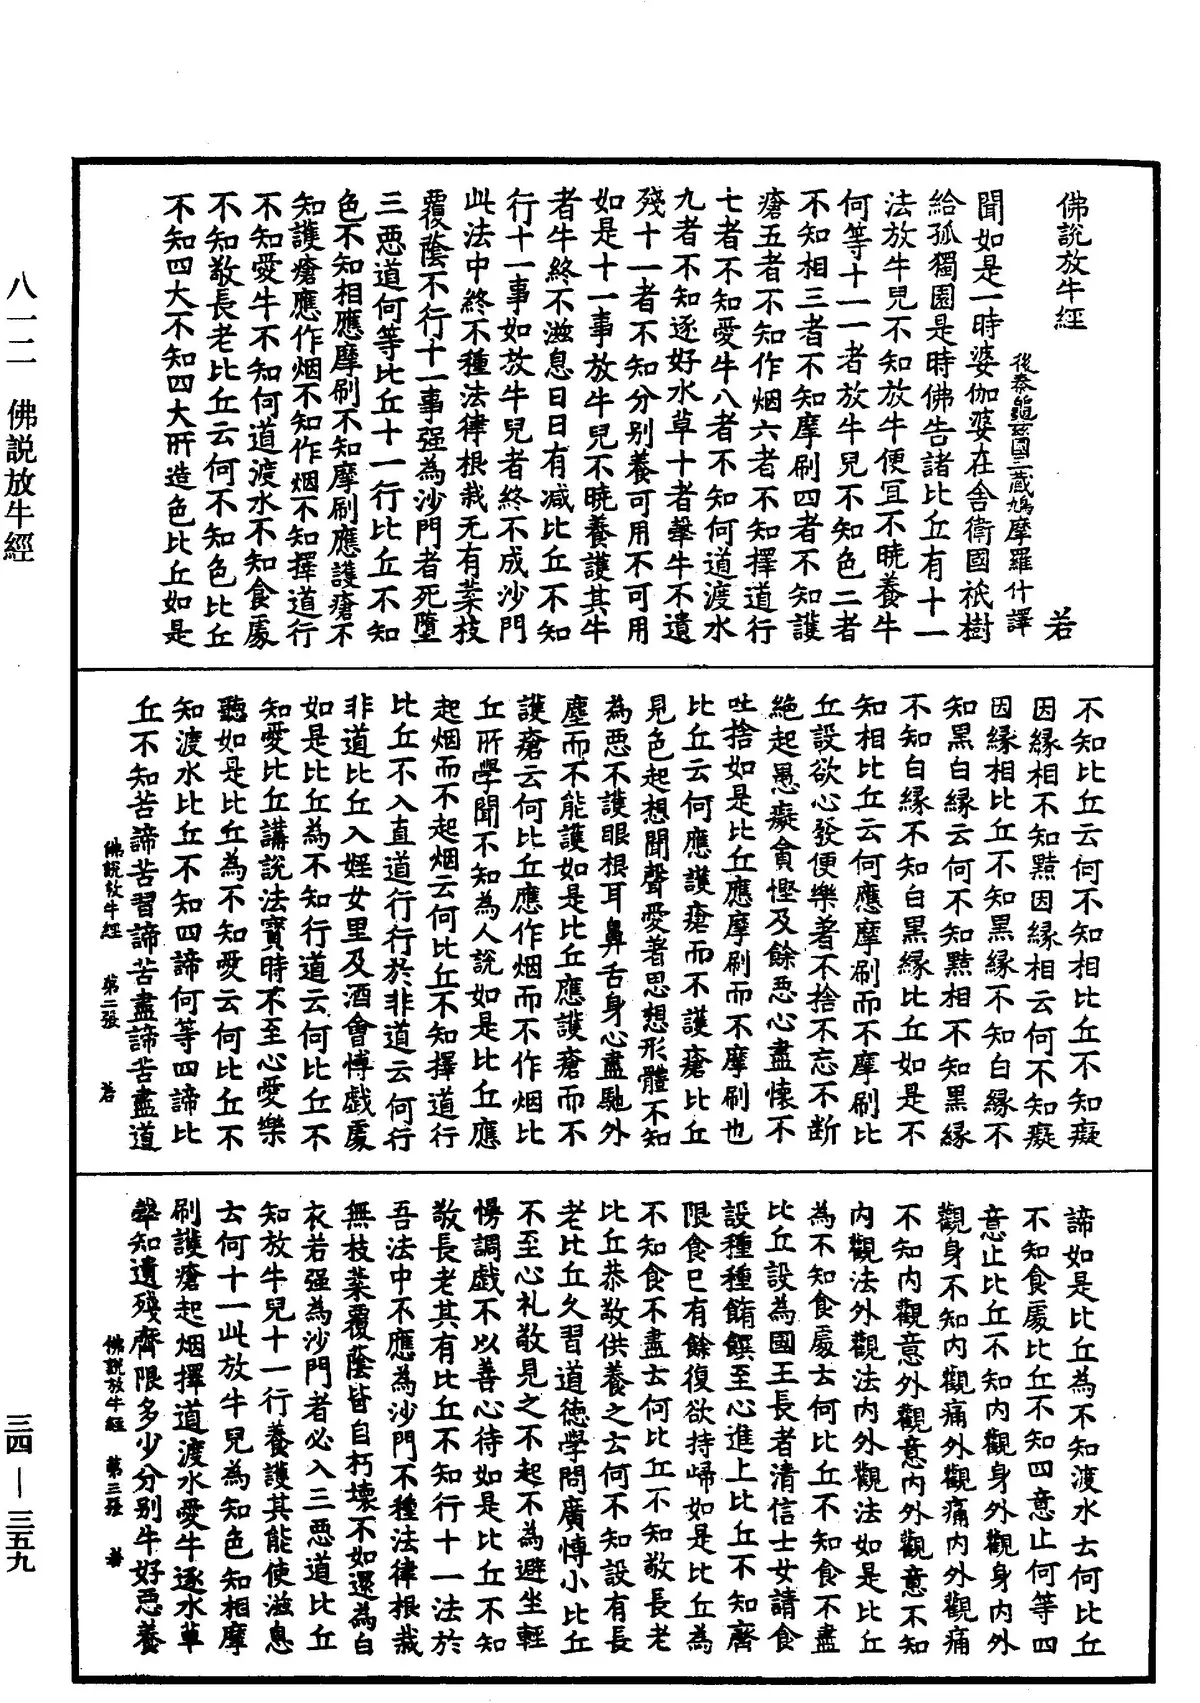 佛說放牛經
若
後秦龜茲國三藏鳩摩羅什譯
聞如是一時婆伽婆在舍衛國祇樹
給孤獨園是時佛告諸比丘有十一
法放牛兒不知放牛便宜不曉養牛
何等十一一者放牛兒不知色二者
不知相三者不知摩刷四者不知護
瘡五者不知作烟六者不知擇道行
七者不知愛牛八者不知何道渡水
九者不知逐好水草十者㲉牛不遺
殘十一者不知分别養可用不可用
如是十一事放牛兒不曉養護其牛
者牛終不滋息日日有减比丘不知
行十一事如放牛兒者終不成沙門
此法中終不種法律根栽无有葉枝
覆蔭不行十一事强為沙門者死墮
三惡道何等比丘十一行比丘不知
色不知相應摩刷不知摩刷應護瘡不
知護瘡應作烟不知作烟不知擇道行
不知愛牛不知何道渡水不知食處
不知敬長老比丘云何不知色比丘
不知四大不知四大所造色比丘如是
不知比丘云何不知相比丘不知癡
因緣相不知黠因緣相云何不知癡
因緣相比丘不知黑緣不知白緣不
知黑白緣云何不知黠相不知黑緣
不知白緣不知白黑緣比丘如是不
知相比丘云何應摩刷而不摩刷比
丘設欲心發便樂著不捨不忘不断
絕起愚癡貪慳及餘惡心盡懷不
吐捨如是比丘應摩刷而不摩刷也
比丘云何應護瘡而不護瘡比丘
見色起想聞聲愛著思想形體不知
為惡不護眼根耳鼻舌身心盡馳外
塵而不能護如是比丘應護瘡而不
護瘡云何比丘應作烟而不作烟比
丘所學聞不知為人說如是比丘應
起烟而不起烟云何比丘不知擇道行
比丘不入直道行行於非道云何行
非道比丘入婬女里及酒會博戲處
如是比丘為不知行道云何比丘不
知愛比丘講說法寶時不至心愛樂
聽如是比丘為不知愛云何比丘不
知渡水比丘不知四諦何等四諦比
丘不知苦諦苦習諦苦盡諦苦盡道
佛說放牛經　第二張　若
諦如是比丘為不知渡水去何比丘
不知食處比丘不知四意止何等四
意止比丘不知内觀身外觀身内外
觀身不知内觀痛外觀痛内外觀痛
不知内觀意外觀意内外觀意不知
内觀法外觀法内外觀法如是比丘
為不知食處去何比丘不知食不盡
比丘設為國王長者清信士女請食
設種種餚饌至心進上比丘不知齊
限食已有餘復欲持歸如是比丘為
不知食不盡去何比丘不知敬長老
比丘恭敬供養之去何不知設有長
老比丘久習道德學問廣博小比丘
不至心礼敬見之不起不為避坐輕
慢調戲不以善心待如是比丘不知
敬長老其有比丘不知行十一法於
吾法中不應為沙門不種法律根栽
無枝葉覆蔭皆自朽壞不如還為白
衣若强為沙門者必入三惡道比丘
知放牛兒十一行養護其能使滋息
去何十一此放牛兒為知色知相摩
刷護瘡起烟擇道渡水愛牛逐水草
㲉知遺殘齊限多少分别牛好惡養
佛說放牛經　第三張　若
八一二　佛說放牛經
三四—三五九